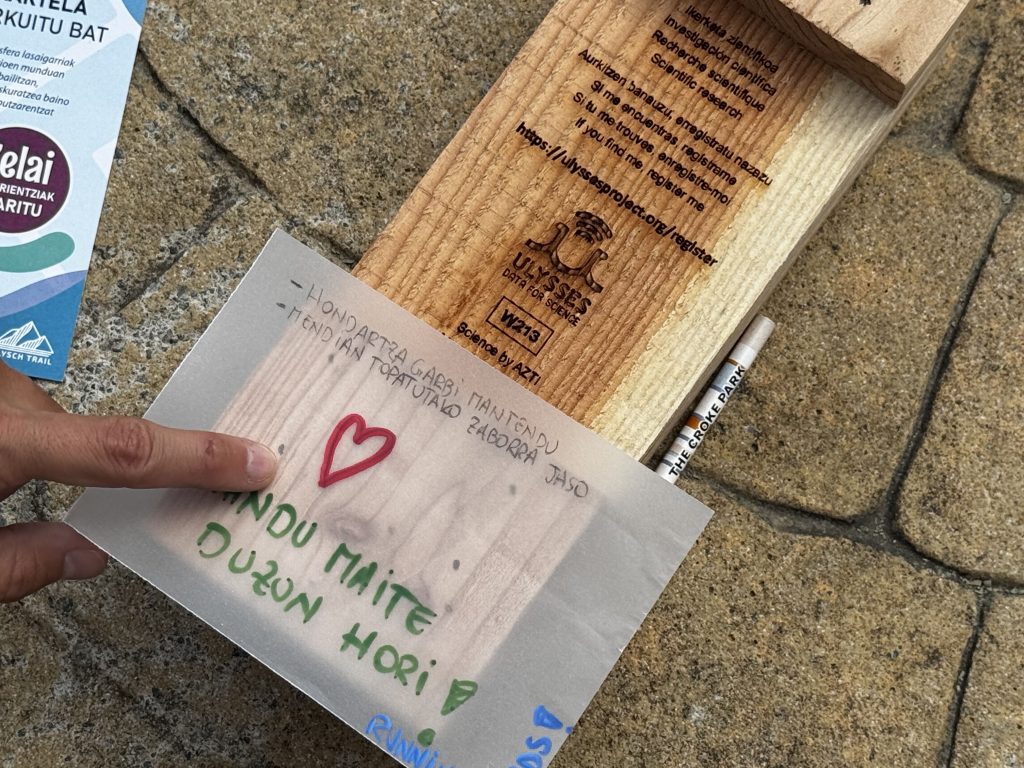 RKUITU BAT
sfera lasaigarriak
munduan
bailitzan,
baino
elai
RIENTZIAK
ARITU
YSCH TRAIL
Ikerketa zientifikoa
Investigación científica
Recherche scientifique
Scientific research
Aurkitzen banauzu, erregistratu nazazu
Si me encuentras, regístrame
Si tu me trouves, enregistre-moi
If you find me register me
https://ulyssesproject.org/register
ULYSSES
DATA FOR SCIENCE
W213
Science by AZTI
THE CROKE PARK
- HONDARTZA GARBI MANTENDU
- MENDIAN TOPATUTAKO ZABORRA JASO
INDU MAITE
DUZUN HORI!